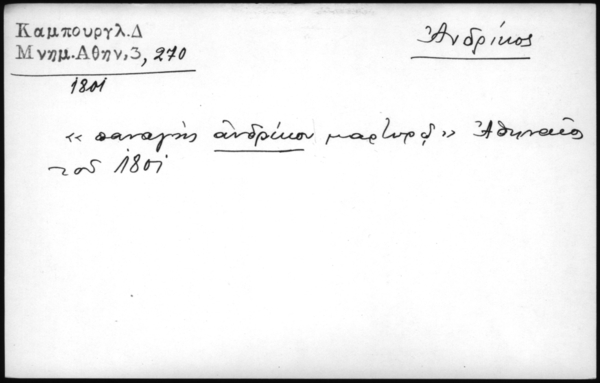 Καμπουργλ.Δ
Μνημ.Αθην.3, 270
1801
Ἀνδρίκος
«παναγής ἀνδρίκου μαρτυρῶ» Ἀθηναῖος
τοῦ 1801